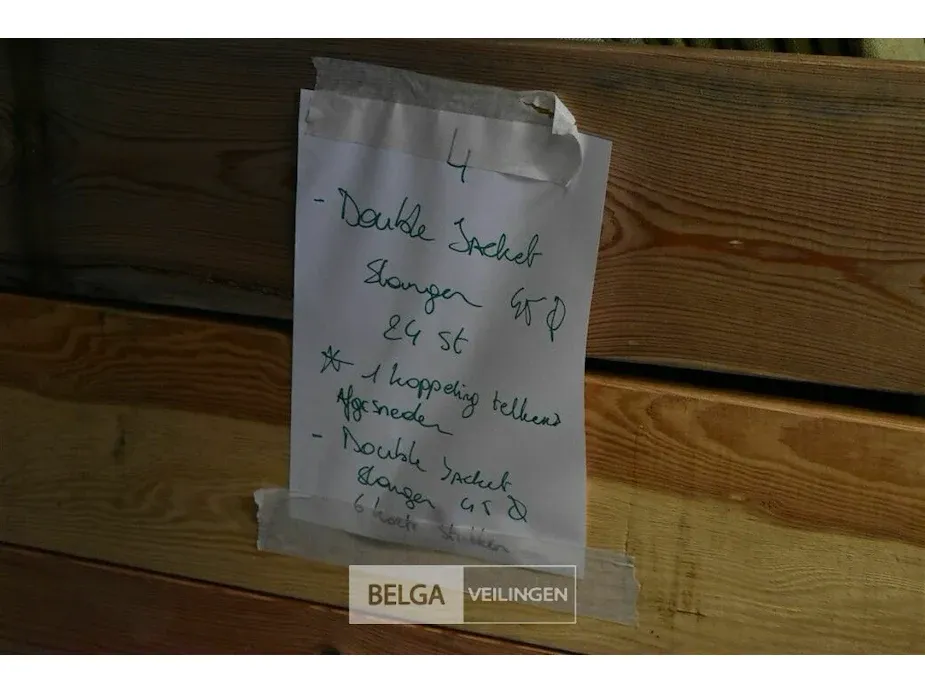 4
- Double Jacket
Slangen 45 Ø
24 st
* 1 koppeling telkens
Afgesneden
- Double Jacket
Slangen 45 Ø
6 korte stukken
BELGA VEILINGEN